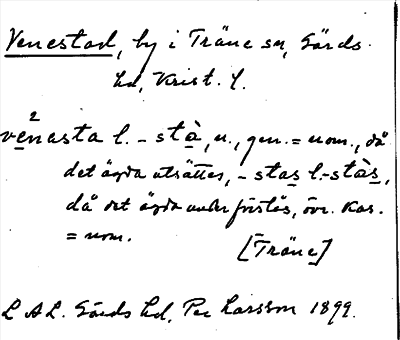 Venestad, by i Träne sn, Gärds
hd, Krist. l.
2
venasta l. -stà, n., gen. = nom., då
det ägda utsättes, -stas l. -stàs,
då det ägda underförstås, övr. kas.
= nom.
[Träne]
L A L. Gärds hd, Per Larsson 1899.